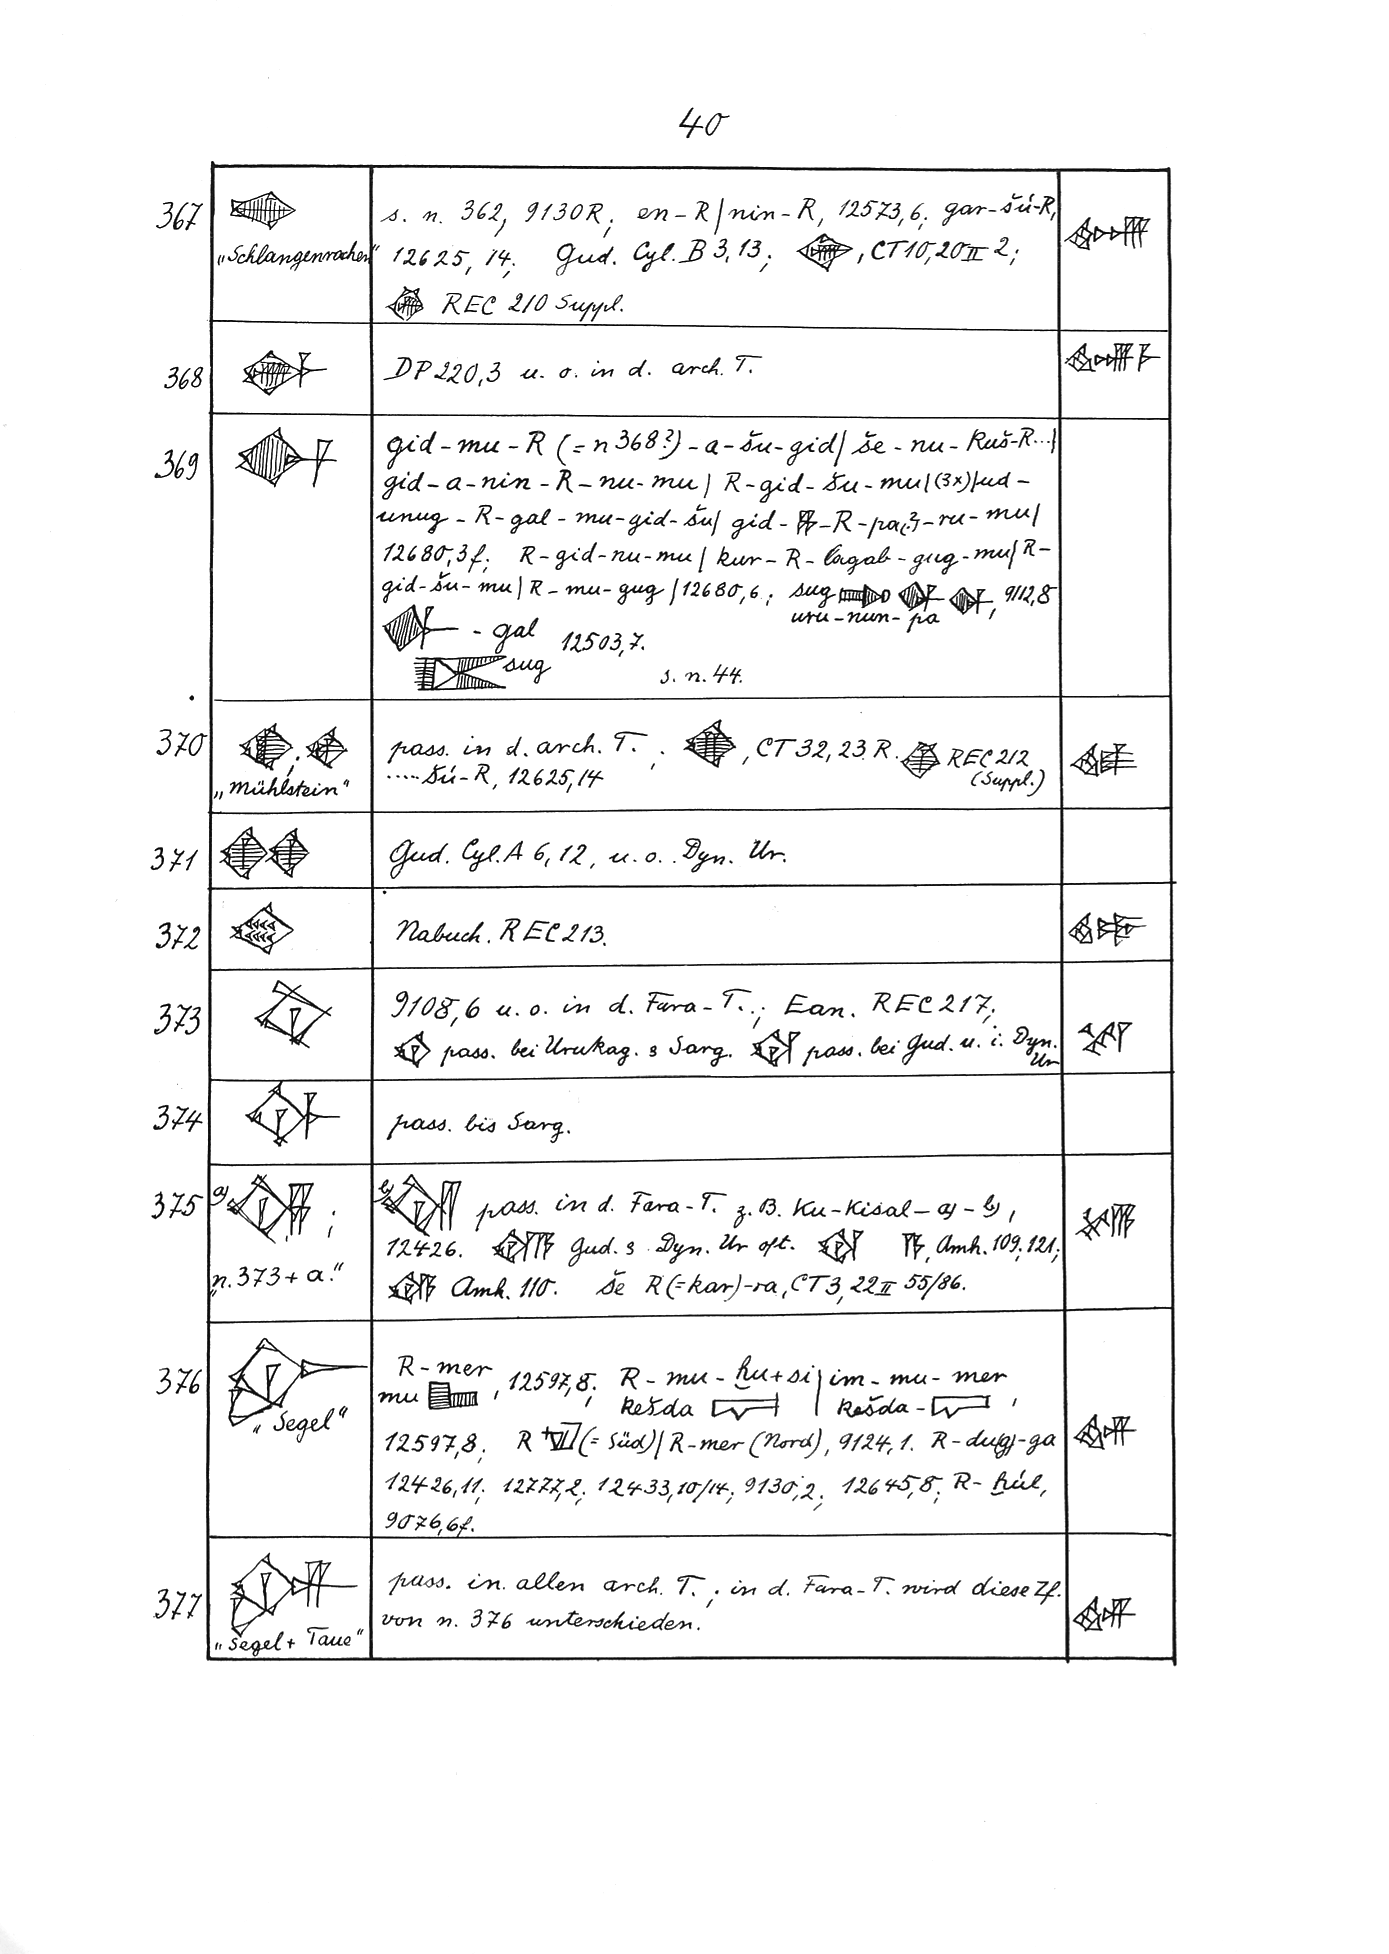 40
367
„Schlangenrachen“
s. n. 362, 9130R; en-R/nin-R, 12573,6; gar-šú-R,
12625, 14; Gud. Cyl. B 3, 13; , CT10, 20 II 2;
REC 210 Suppl.
368
DP 220,3 u. o. in d. arch. T.
369
gid-mu-R (= n 368?)-a-šu-gid/ še-nu-kuš-R.../
gid-a-nin-R-nu-mu/ R-gid-šu-mu/(3x)/ud-
unug-R-gal-mu-gid-šu/ gid- -R-pa(?)-ru-mu/
12680,3f; R-gid-nu-mu/ kur-R-lagab-gug-mu/ R-
gid-šu-mu/ R-mu-gug /12680,6; sug , 9112,8
uru-nun-pa
- gal 12503,7.
sug s. n. 44.
370
„Mühlstein“
pass. in d. arch. T. ; , CT 32, 23 R. REC 212
(Suppl.)
..... šú-R, 12625,14
371
Gud. Cyl. A 6, 12, u. o. Dyn. Ur.
372
Nabuch. REC 213.
373
9108,6 u. o. in d. Fara-T.; Ean. REC 217;
pass. bei Urukag. s Sarg. pass. bei Gud. u. i. Dyn.
Ur
374
pass. bis Sarg.
375
a) ;
„n. 373 + a.“
b) pass. in d. Fara-T. z. B. Ku-Kisal-a)-b),
12426. Gud. s Dyn. Ur oft. , Amh. 109; 121;
Amh. 110. še R (= kar)-ra, CT 3, 22 II 55/86.
376
„Segel“
R-mer
mu , 12597,8; R-mu-ḫu+si/im-mu-mer
kešda / kešda- ,
12597,8; R (= Süd)/ R-mer (Nord), 9124,1. R-dug-ga
12426,11; 12777,2; 12433,10/14; 9130,2; 12645,8; R-ḫúl,
9076,6f.
377
„Segel + Taue“
pass. in allen arch. T.; in d. Fara-T. wird diese Zf.
von n. 376 unterschieden.